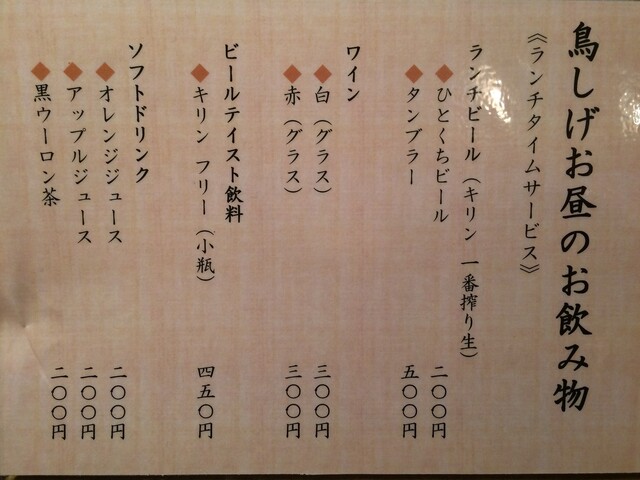 鳥しげお昼のお飲み物
《ランチタイムサービス》
ランチビール（キリン 一番搾り生）
◆ひとくちビール 二〇〇円
◆タンブラー 五〇〇円
ワイン
◆白（グラス） 三〇〇円
◆赤（グラス） 三〇〇円
ビールテイスト飲料
◆キリン フリー（小瓶） 四五〇円
ソフトドリンク
◆オレンジジュース 二〇〇円
◆アップルジュース 二〇〇円
◆黒ウーロン茶 二〇〇円